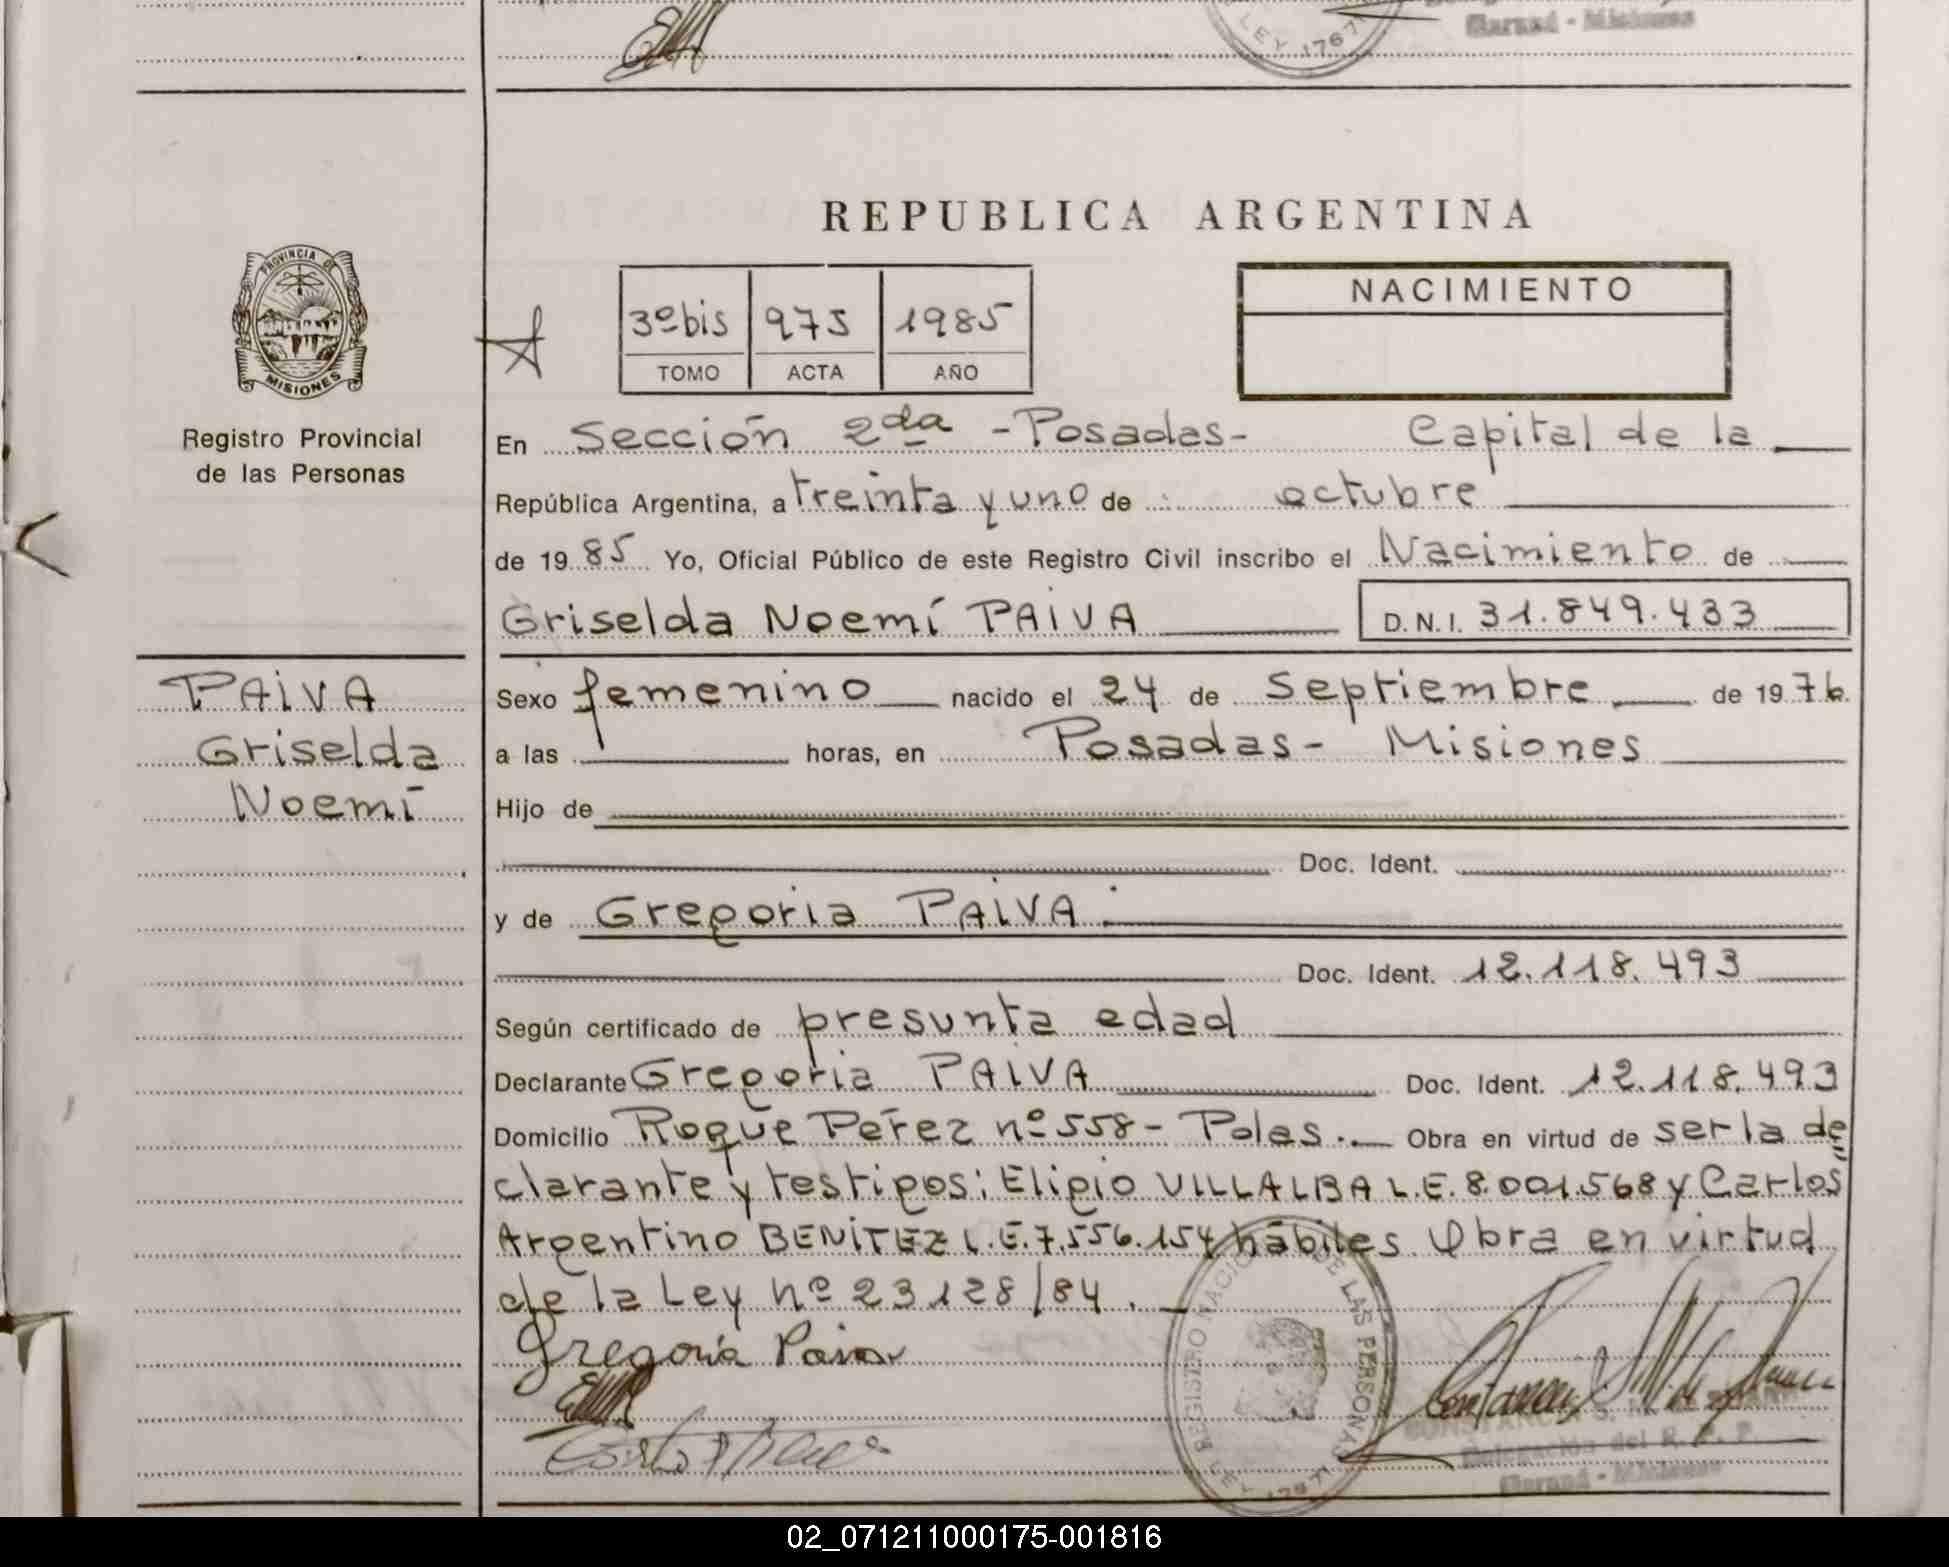 LEY 1767
Garuad - Misiones
REPUBLICA ARGENTINA
PROVINCIA DE
MISIONES
Registro Provincial
de las Personas
3º bis 975 1985
TOMO ACTA AÑO
NACIMIENTO
En Sección 2da - Posadas - Capital de la
República Argentina, a treinta y uno de octubre
de 1985 Yo, Oficial Público de este Registro Civil inscribo el Nacimiento de
Griselda Noemí PAIVA D.N.I. 31.849.433
PAIVA
Griselda
Noemí
Sexo femenino nacido el 24 de Septiembre de 1976.
a las horas, en Posadas - Misiones
Hijo de
Doc. Ident.
y de Gregoria PAIVA
Doc. Ident. 12.118.493
Según certificado de presunta edad
Declarante Gregoria PAIVA Doc. Ident. 12.118.493
Domicilio Roque Perez nº 558 - Pdas. Obra en virtud de ser la de
clarante y testigos: Eligio VILLALBA L.E. 8.001.568 y Carlos
Argentino BENITEZ L.E. 7.556.154 hábiles. Obra en virtud
de la Ley nº 23128/84.
Gregoria Paiva
REGISTRO NACIONAL DE LAS PERSONAS
LEY 1767
CONSTANCIA S. M.
Delegación del R. P. P.
Garuad - Misiones
02_071211000175-001816